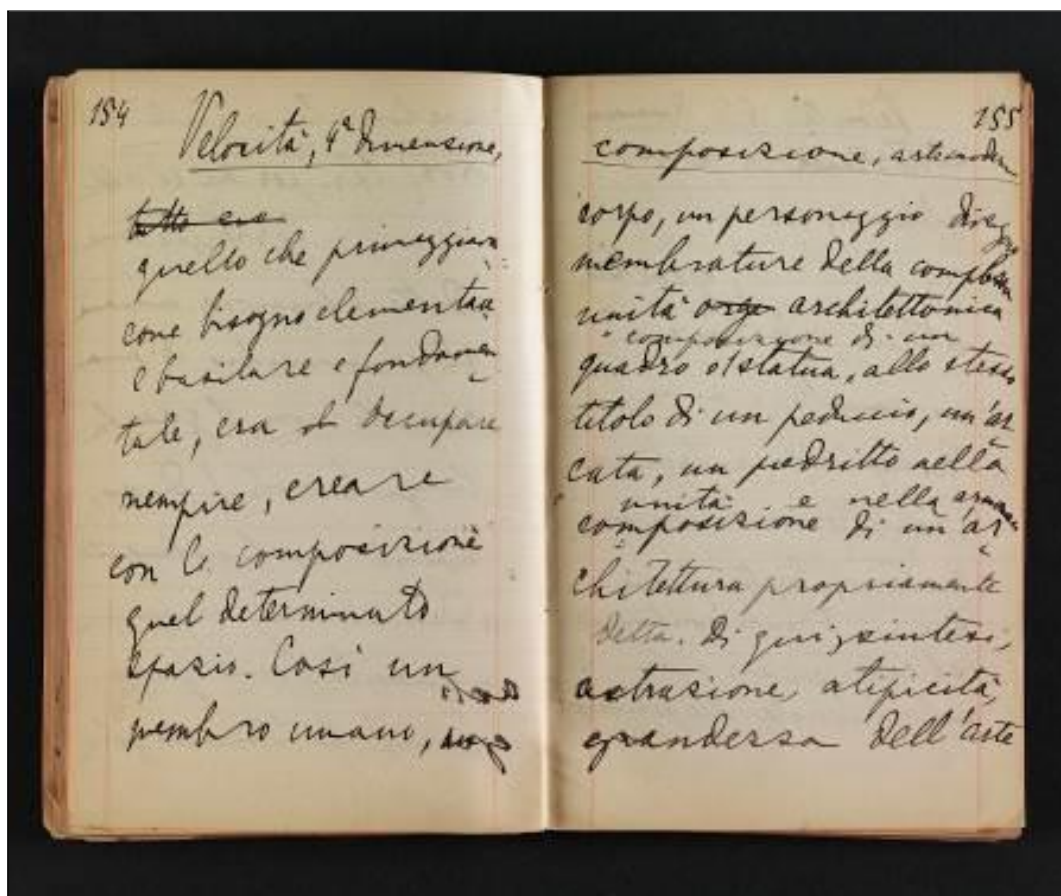 154
Velocità, 4ª Dimensione,
tutto era
quello che primeggiava
come bisogno elementa
e basilare e fondamen
tale, era di occupare
riempire, creare
con la composizione
quel determinato
spazio. Così un
membro umano,
155
composizione, arte moder
corpo, un personaggio
membrature della
unità orga architettonica
composizione di un
quadro o statua, allo stesso
titolo di un peduccio, un'ar
cata, un piedritto nella
unità e nella
composizione di un'ar
chitettura propriamente
detta. Di qui, sintesi,
astrazione, atipicità,
grandezza dell'arte